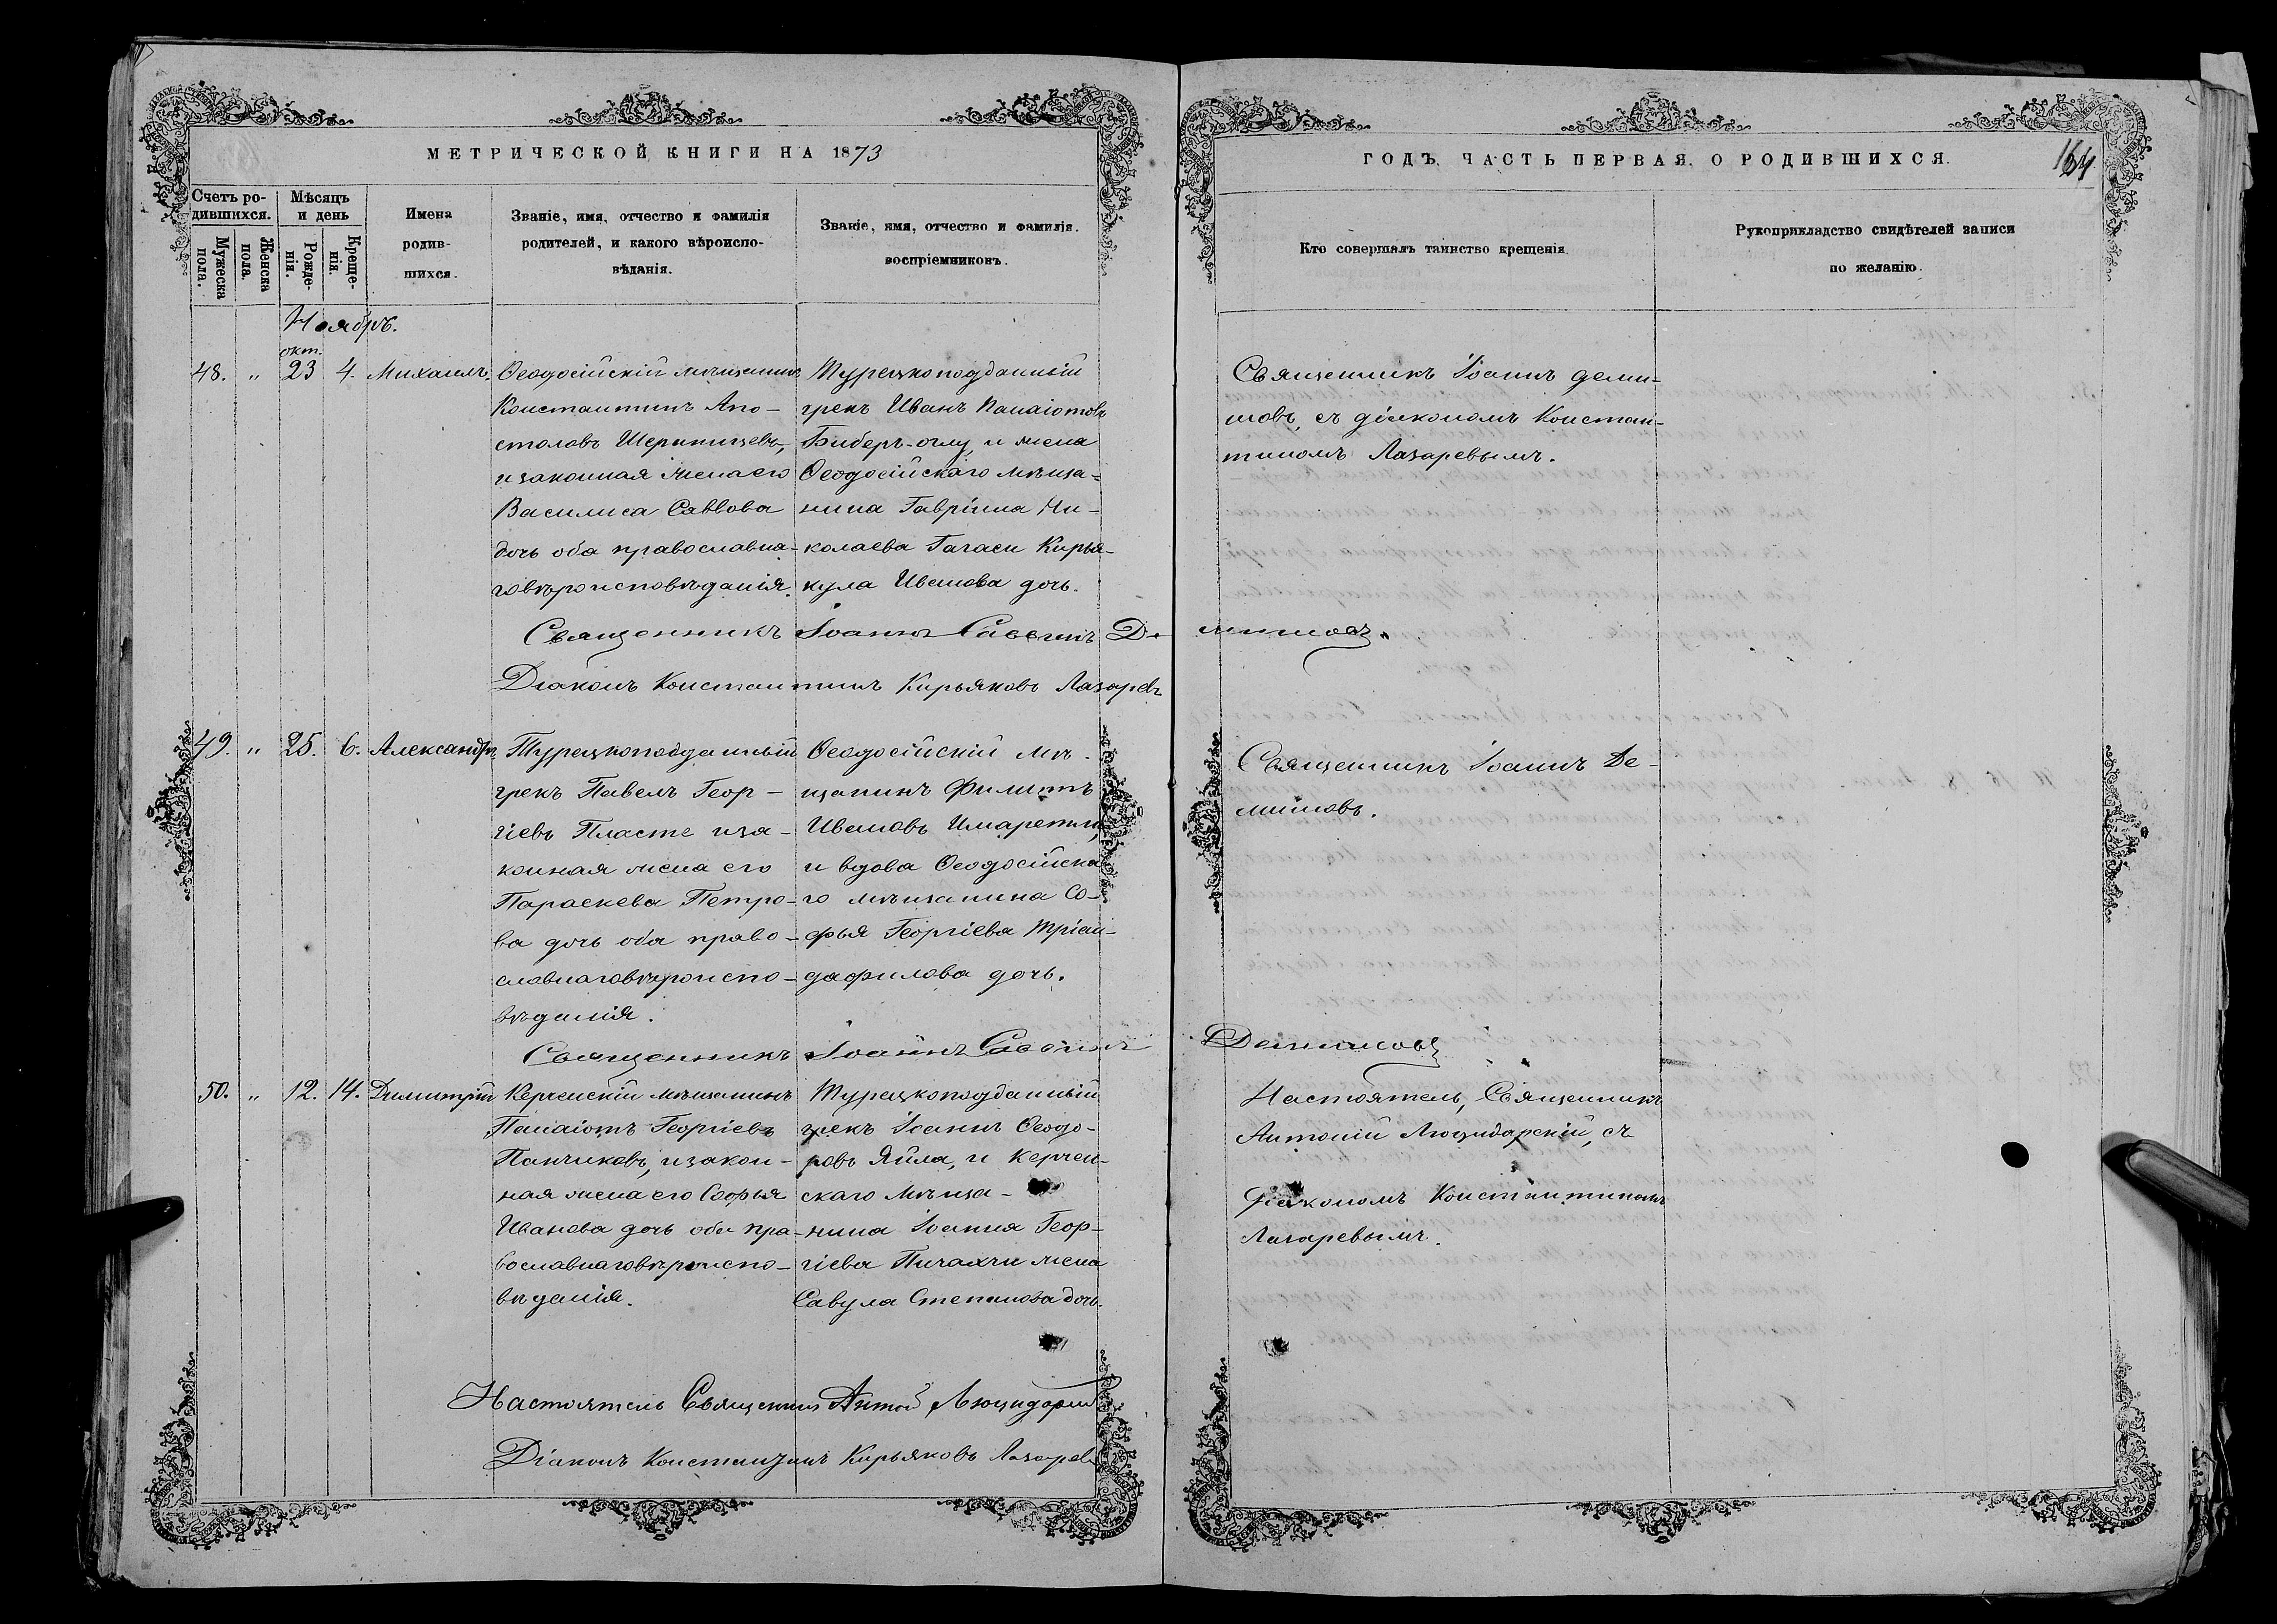 МЕТРИЧЕСКОЙ КНИГИ НА 1873
ГОДЪ, ЧАСТЬ ПЕРВАЯ, О РОДИВШИХСЯ.
164
Счетъ ро-
дившихся.
Мужеска
пола.
Женска
пола.
Мѣсяцъ
и день
Рожде-
нія.
Креще-
нія.
Имена
родив-
шихся.
Званіе, имя, отчество и фамилія
родителей, и какого вѣроиспо-
вѣданія.
Званіе, имя, отчество и фамилія.
воспріемниковъ.
Кто совершалъ таинство крещенія
Рукоприкладство свидѣтелей записи
по желанію.
Ноябрь.
окт.
48. „ 23 4. Михаилъ.
Ѳеодосійскій мѣщанинъ
Константинъ Апо-
столовъ
и законная жена его
Василиса Саввова
дочь оба православна-
го вѣроисповѣданія.
Турецкоподданный
грекъ Иванъ Панаіотовъ
Биберъ-оглу, и жена
Ѳеодосійскаго мѣща-
нина Гавріила Ни-
колаева Гагаси Кирья-
кула Иванова дочь.
Священникъ Іоаннъ Деми-
новъ, съ діакономъ Констан-
тиномъ Лазаревымъ.
Священникъ Іоаннъ Саввинъ Де миновъ.
Діаконъ Константинъ Кирьяковъ Лазаревъ
49. „ 25. 6. Александръ
Турецкоподданный
грекъ Павелъ Геор-
гіевъ Пласте и за-
конная жена его
Параскева Петро-
ва дочь оба право-
славнаго вѣроиспо-
вѣданія.
Ѳеодосійскій мѣ-
щанинъ Филиппъ
Ивановъ
и вдова Ѳеодосійска
го мѣщанина Со-
фья Георгіева Тріан-
дафилова дочь.
Священникъ Іоаннъ Де-
миновъ.
Священникъ Іоаннъ Саввинъ Деминовъ
50. „ 12. 14. Димитрій
Керченскій мѣщанинъ
Панаіотъ Георгіевъ
Панчиковъ, и закон-
ная жена его Софья
Иванова дочь оба пра-
вославнаго вѣроиспо-
вѣданія.
Турецкоподданный
грекъ Іоаннъ Ѳеодо-
ровъ Яйла, и Керчен-
скаго мѣща-
нина Іоанна Геор-
гіева Пичахчи жена
Савула Степанова дочь.
Настоятель, Священникъ
Антоній Люцидарскій, съ
Діакономъ Константиномъ
Лазаревымъ.
Настоятель Священникъ Антоній Люцидарскій
Діаконъ Константинъ Кирьяковъ Лазаревъ